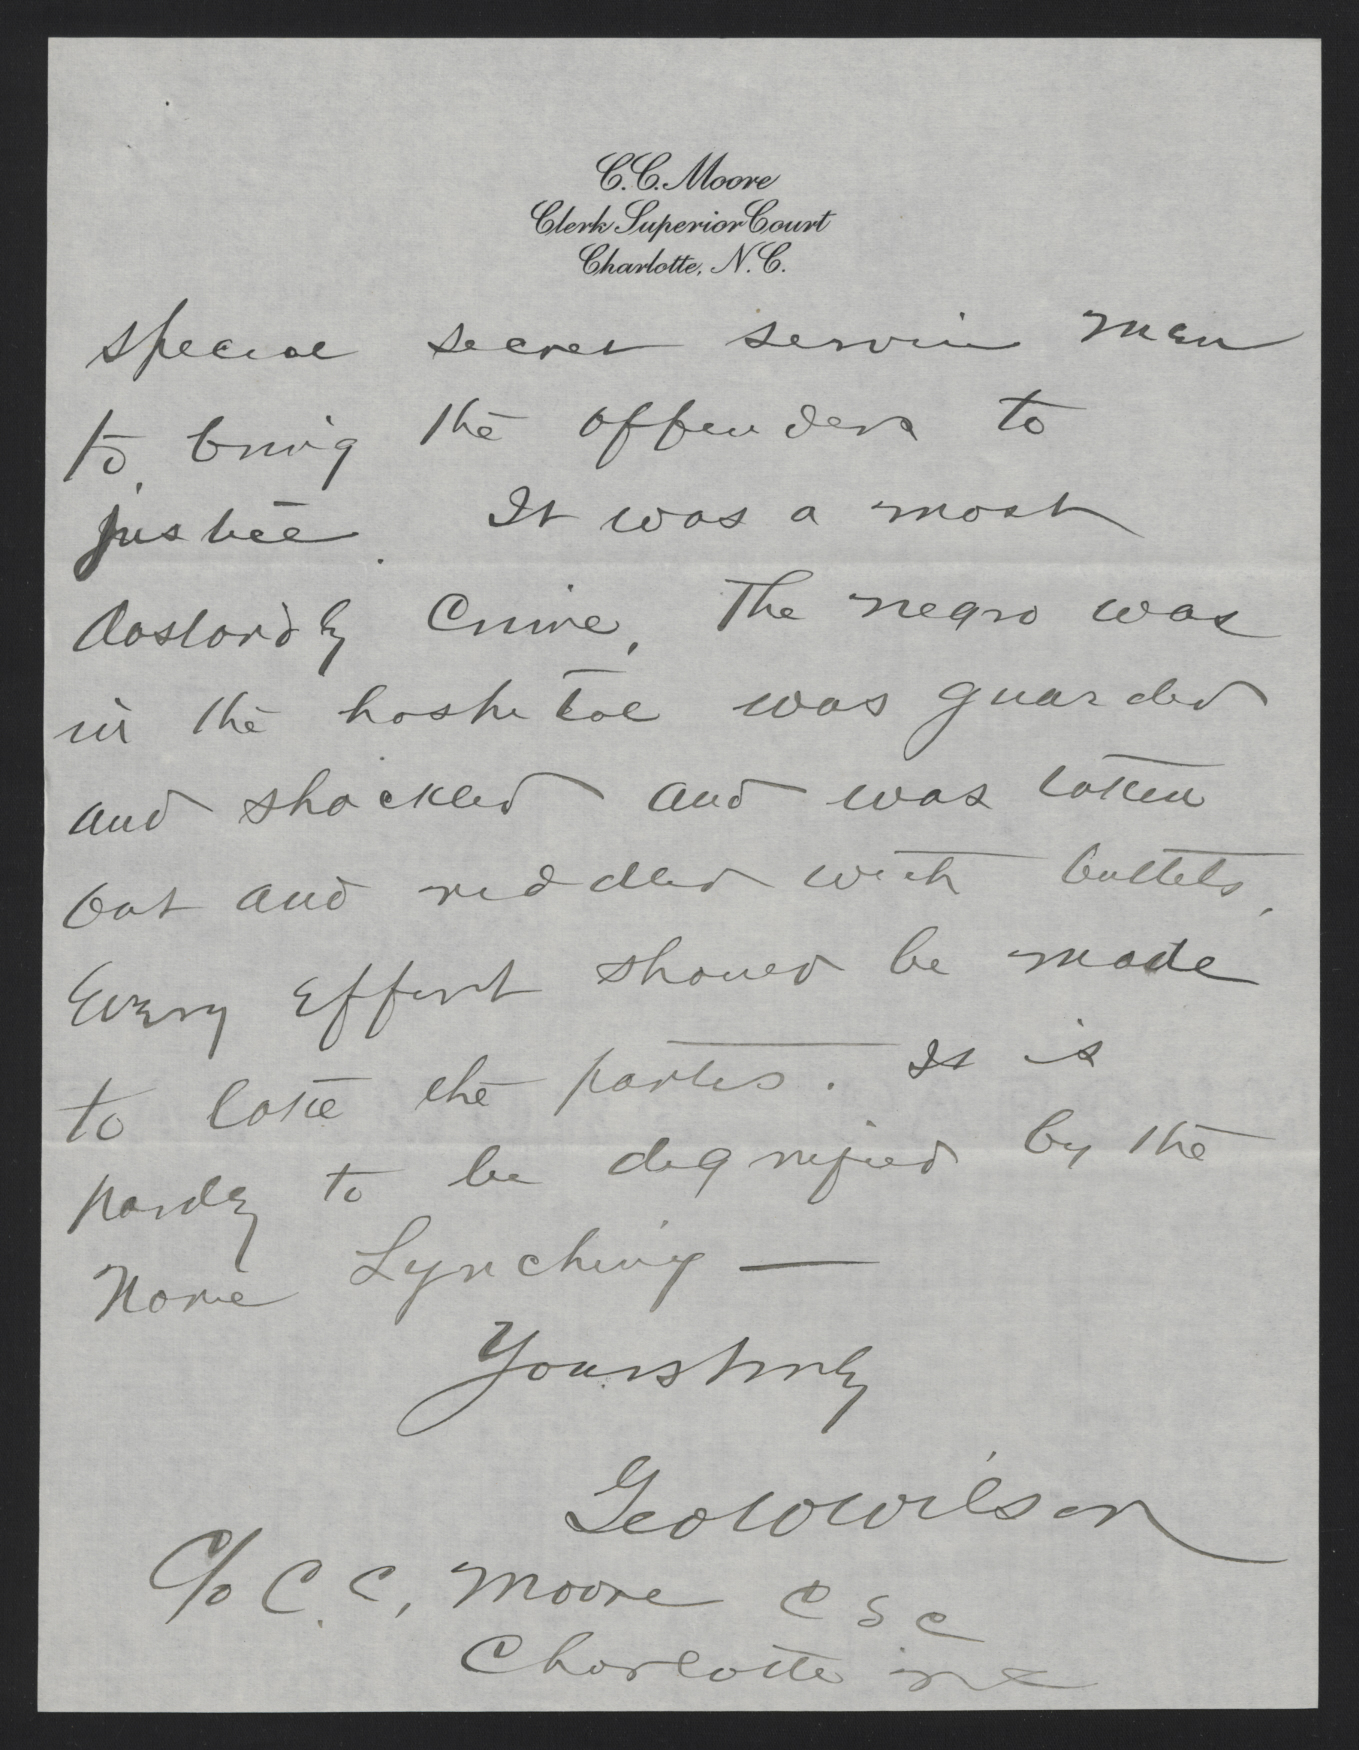 C.C. Moore
Clerk Superior Court
Charlotte, N.C.
special secret service men
to bring the offenders to
justice. It was a most
dastardly crime, The negro was
in the hospital was guarded
and shackled and was taken
out and riddled with bullets,
Every effort should be made
to take the parties. It is
hardly to be dignified by the
name Lynching —
Yours truly
Geo W Wilson
c/o C. C. Moore C S C
Charlotte N C